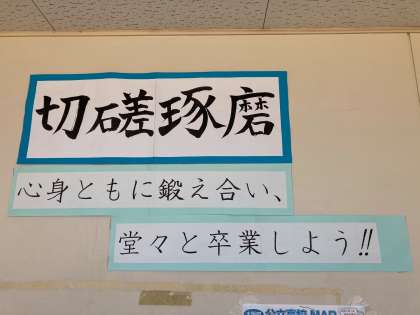 切磋琢磨
心身ともに鍛え合い、
堂々と卒業しよう!!
公立高校 MAP